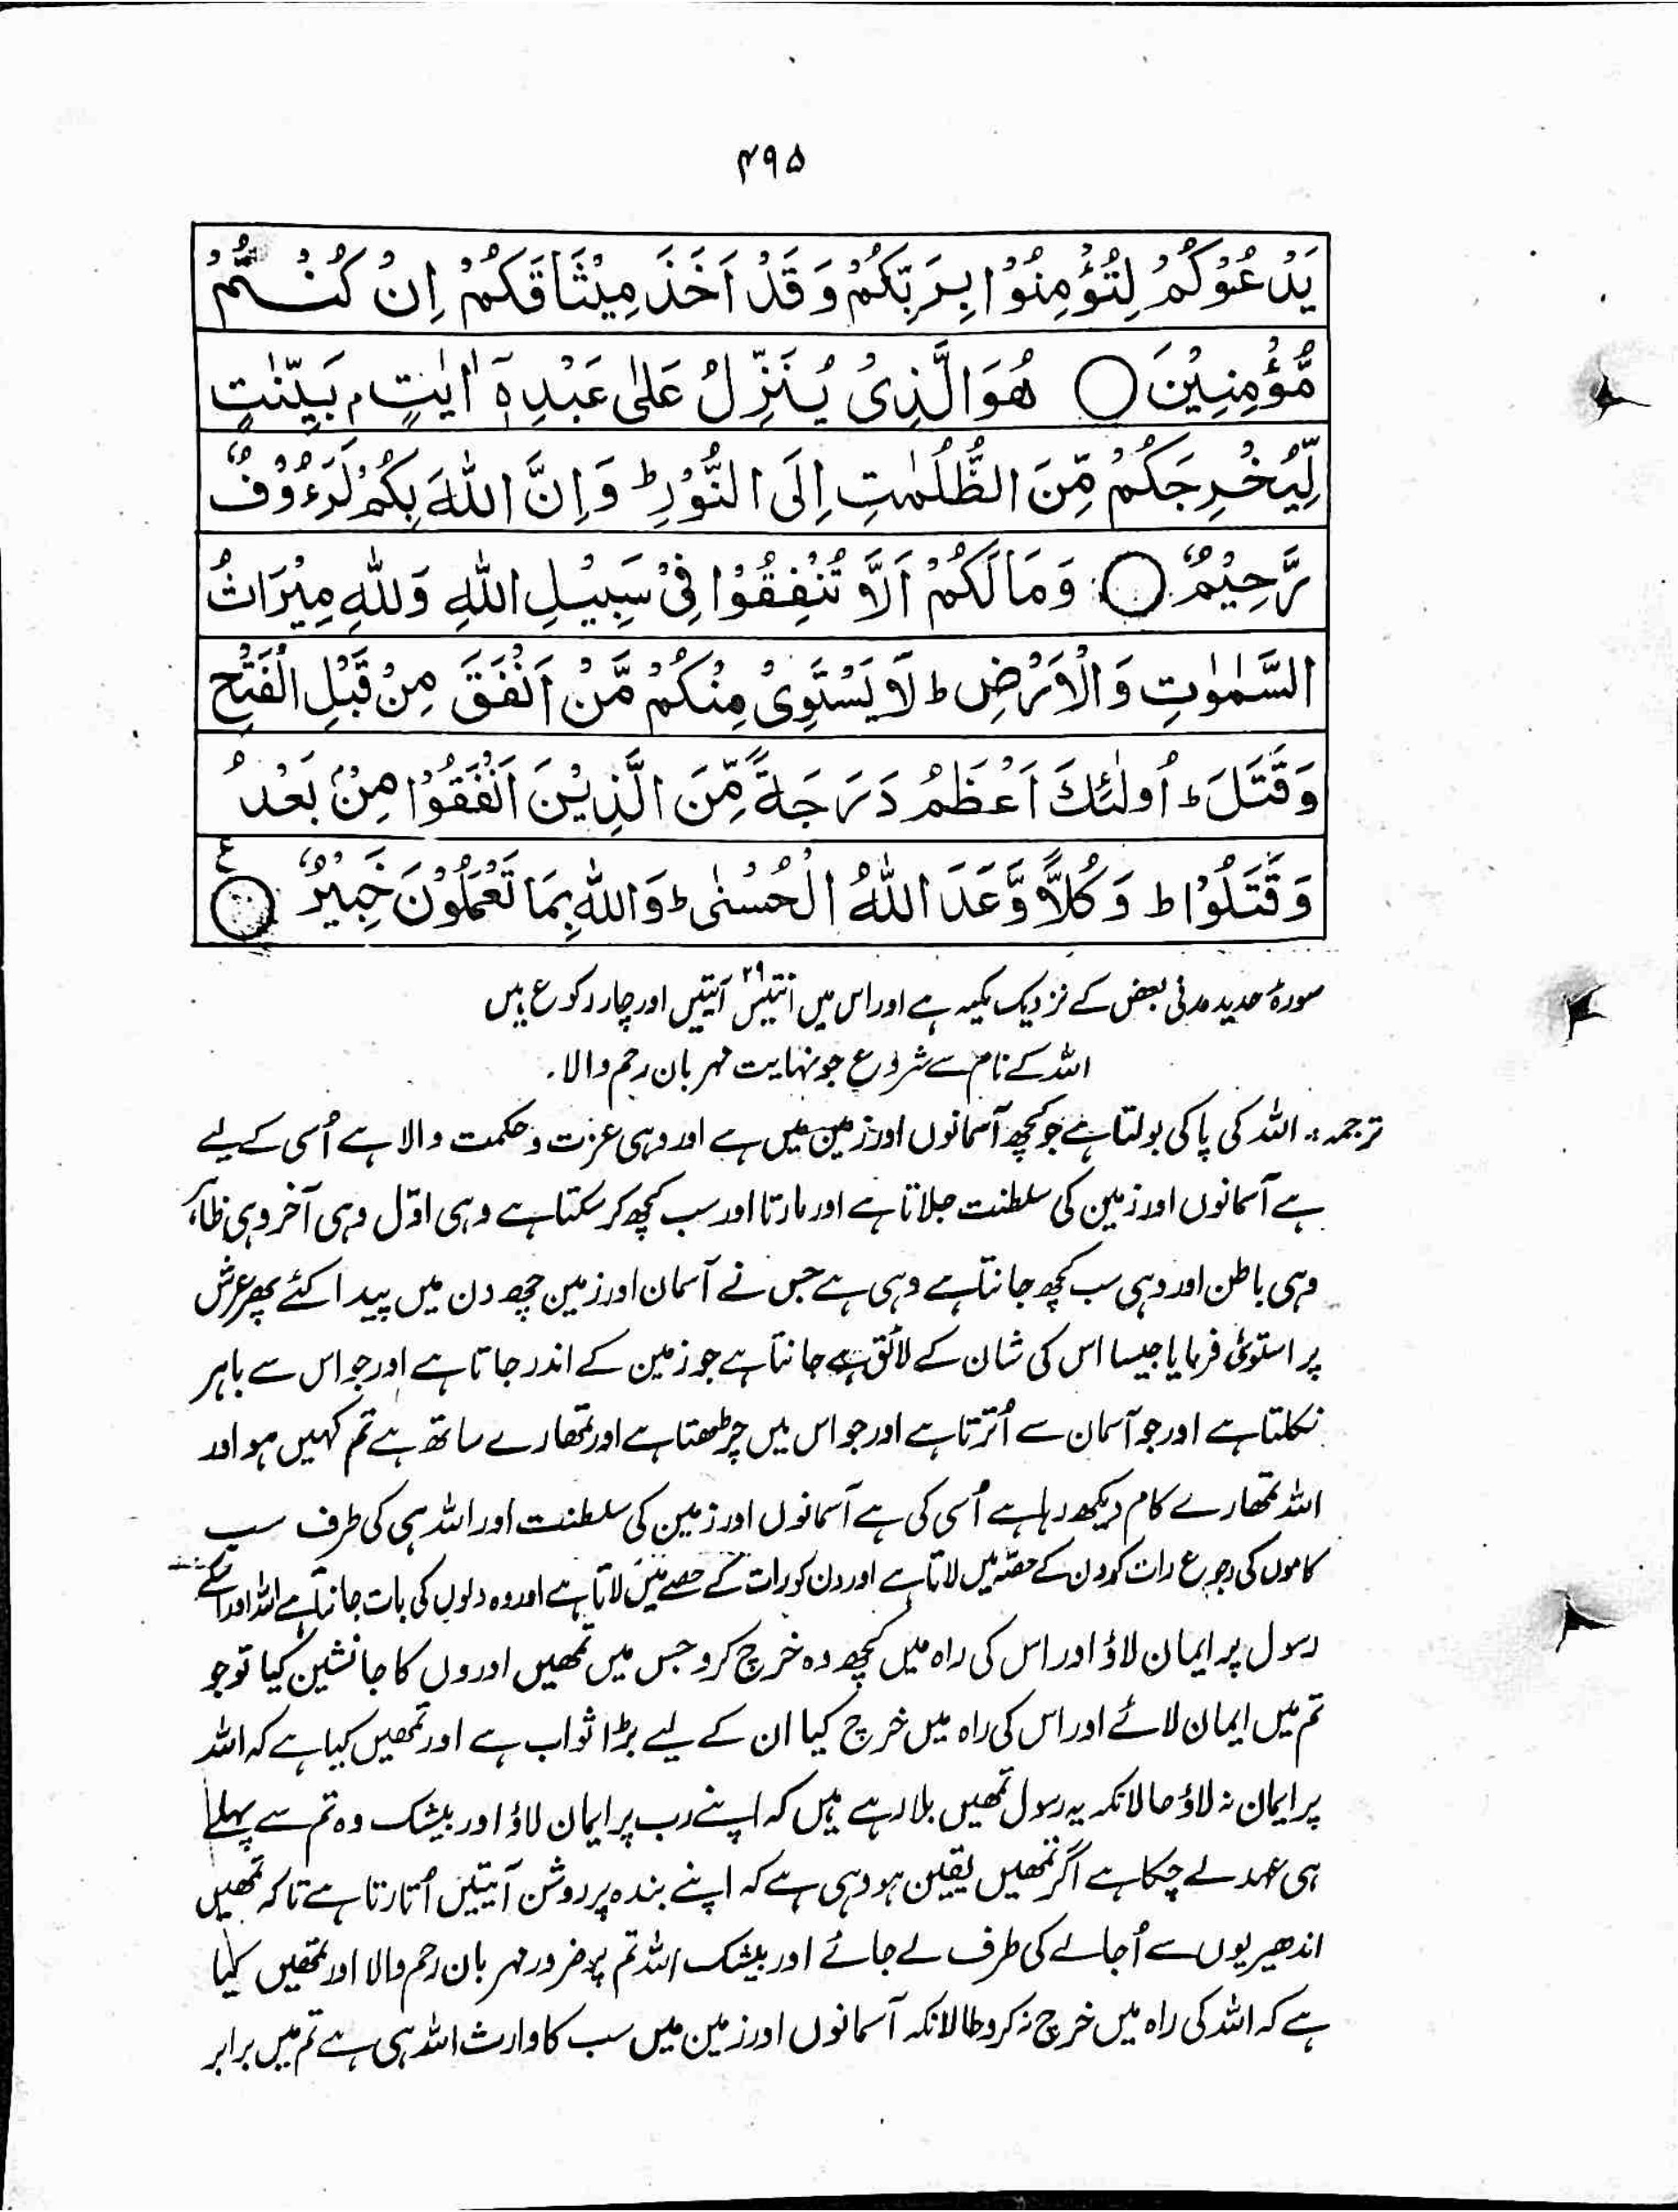 ۴۹۵
يَدْعُوْكُمْ لِتُؤْمِنُوْا بِرَبِّكُمْ وَقَدْ اَخَذَ مِيْثَاقَكُمْ اِنْ كُنْتُمْ
مُّؤْمِنِيْنَ ○ هُوَ الَّذِىْ يُنَزِّلُ عَلٰى عَبْدِهٖٓ اٰيٰتٍۭ بَيِّنٰتٍ
لِّيُخْرِجَكُمْ مِّنَ الظُّلُمٰتِ اِلَى النُّوْرِ ؕ وَاِنَّ اللّٰهَ بِكُمْ لَرَءُوْفٌ
رَّحِيْمٌ ○ وَمَا لَكُمْ اَلَّا تُنْفِقُوْا فِىْ سَبِيْلِ اللّٰهِ وَلِلّٰهِ مِيْرَاثُ
السَّمٰوٰتِ وَالْاَرْضِ ؕ لَا يَسْتَوِىْ مِنْكُمْ مَّنْ اَنْفَقَ مِنْ قَبْلِ الْفَتْحِ
وَقٰتَلَ ؕ اُولٰٓئِكَ اَعْظَمُ دَرَجَةً مِّنَ الَّذِيْنَ اَنْفَقُوْا مِنْۢ بَعْدُ
وَقٰتَلُوْا ؕ وَكُلًّا وَّعَدَ اللّٰهُ الْحُسْنٰى ؕ وَاللّٰهُ بِمَا تَعْمَلُوْنَ خَبِيْرٌ ○ ع
سورۂ حدید مدنی بعض کے نزدیک مکیہ ہے اور اس میں انتیس ۲۹ آیتیں اور چار رکوع ہیں
اللہ کے نام سے شروع جو نہایت مہربان رحم والا۔
ترجمہ:۔ اللہ کی پاکی بولتا ہے جو کچھ آسمانوں اور زمین میں ہے اور وہی عزت و حکمت والا ہے اُسی کے لیے
ہے آسمانوں اور زمین کی سلطنت جلاتا ہے اور مارتا اور سب کچھ کر سکتا ہے وہی اوّل وہی آخر وہی ظاہر
وہی باطن اور وہی سب کچھ جانتا ہے وہی ہے جس نے آسمان اور زمین چھ دن میں پیدا کئے پھر عرش
پر استویٰ فرمایا جیسا اس کی شان کے لائق ہے جانتا ہے جو زمین کے اندر جاتا ہے اور جو اس سے باہر
نکلتا ہے اور جو آسمان سے اُترتا ہے اور جو اس میں چڑھتا ہے اور تمھارے ساتھ ہے تم کہیں ہو اور
اللہ تمھارے کام دیکھ رہا ہے اُسی کی ہے آسمانوں اور زمین کی سلطنت اور اللہ ہی کی طرف سب
کاموں کی رجوع رات کو دن کے حصّہ میں لاتا ہے اور دن کو رات کے حصے میں لاتا ہے اور وہ دلوں کی بات جانتا ہے اللہ اور اسکے
رسول پر ایمان لاؤ اور اس کی راہ میں کچھ وہ خرچ کرو جس میں تمھیں اوروں کا جانشین کیا تو جو
تم میں ایمان لائے اور اس کی راہ میں خرچ کیا ان کے لیے بڑا ثواب ہے اور تمھیں کیا ہے کہ اللہ
پر ایمان نہ لاؤ حالانکہ یہ رسول تمھیں بلا رہے ہیں کہ اپنے رب پر ایمان لاؤ اور بیشک وہ تم سے پہلے
ہی عہد لے چکا ہے اگر تمھیں یقین ہو وہی ہے کہ اپنے بندہ پر روشن آیتیں اُتارتا ہے تاکہ تمھیں
اندھیریوں سے اُجالے کی طرف لے جائے اور بیشک اللہ تم پر ضرور مہربان رحم والا اور تمھیں کیا
ہے کہ اللہ کی راہ میں خرچ نہ کرو حالانکہ آسمانوں اور زمین میں سب کا وارث اللہ ہی ہے تم میں برابر